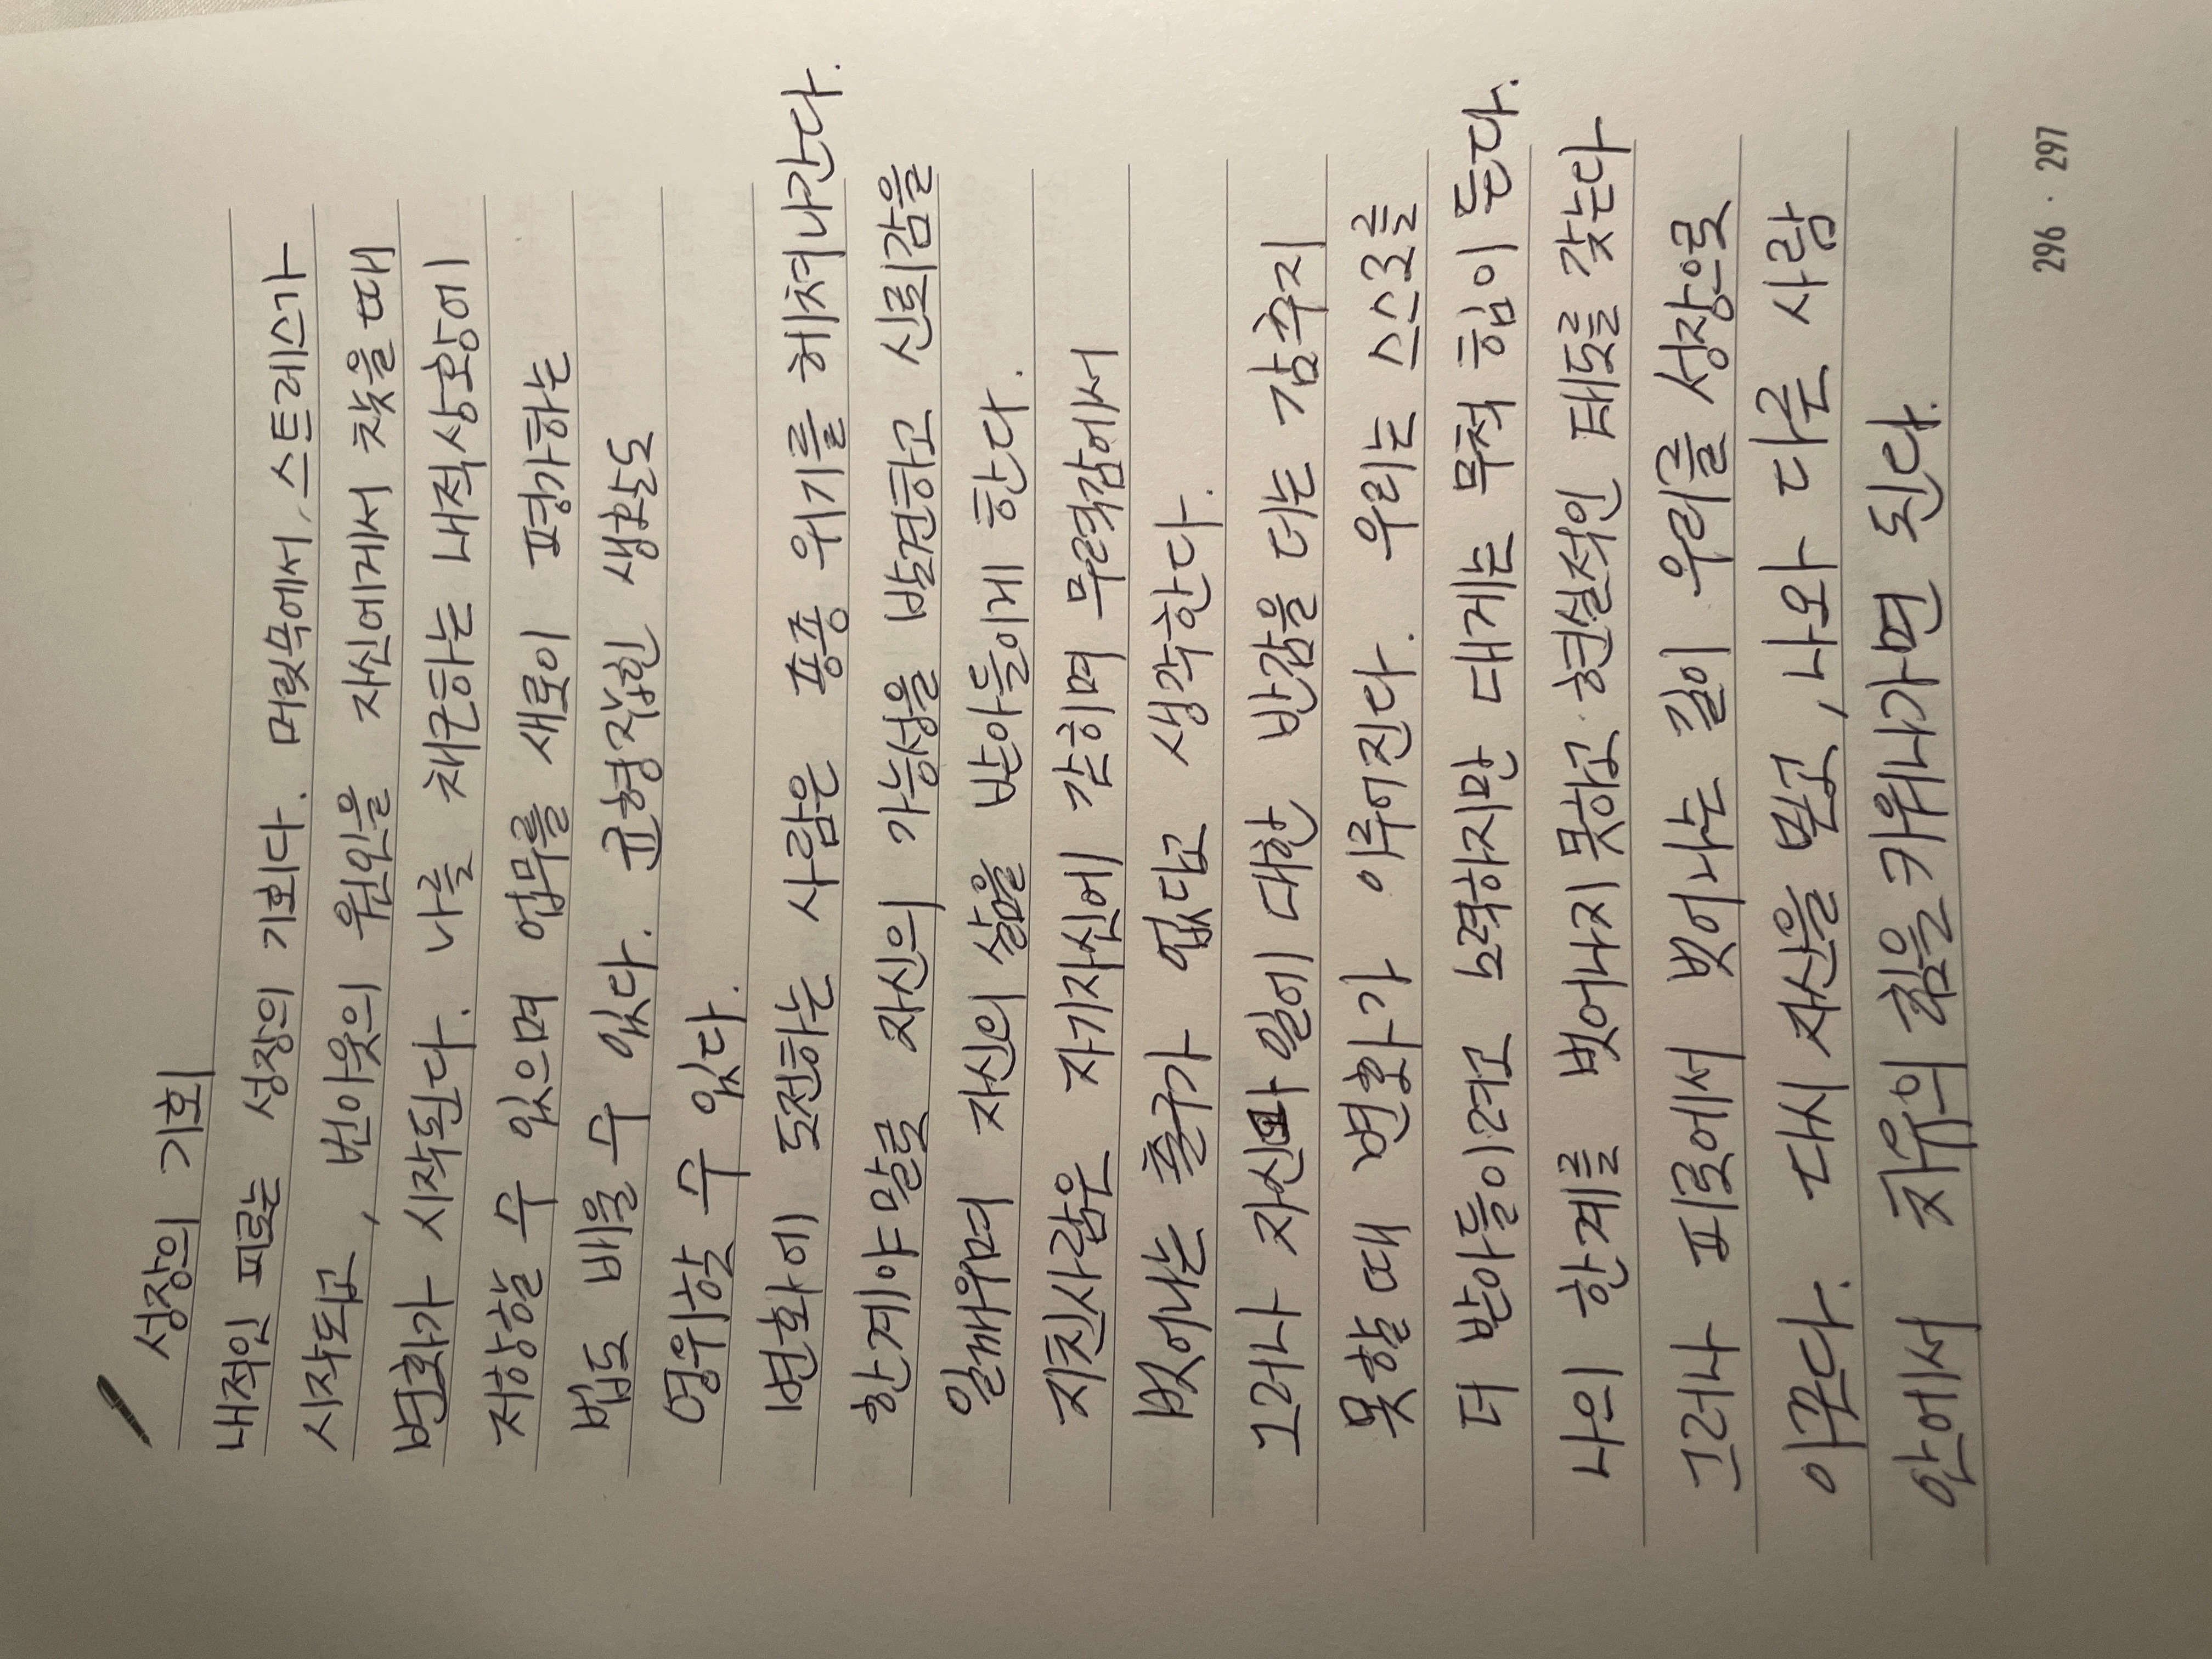 성장의 기회
내적인 피로는 성장의 기회다. 머릿속에서, 스트레스가
시작되고, 번아웃의 원인을 자신에게서 찾을 때
변화가 시작된다. 나를 채근하는 내적상황에
저항할 수 있으며 업무를 새로이 평가하는
법도 배울 수 있다. 균형잡힌 생활도
영위할 수 있다.
변화에 도전하는 사람은 종종 위기를 헤쳐나간다.
한계야말로 자신의 가능성을 발견하고 신뢰감을
일깨우며 자신의 삶을 받아들이게 한다.
지친사람은 자기자신에 갇히며 무력감에서
벗어나는 출구가 없다고 생각한다.
그러나 자신과 일에 대한 반감을 더는 감추지
못할 때 변화가 이루어진다. 우리는 스스로를
더 받아들이려고 노력하지만 대게는 무척 힘이 든다.
나의 한계를 벗어나지 못하고 현실적인 태도를 갖는다
그러나 피로에서 벗어나는 길이 우리를 성장으로
이끈다. 다시 자신을 믿고, 나와 다른 사람
안에서 치유의 힘을 키워나가면 된다.
296 · 297